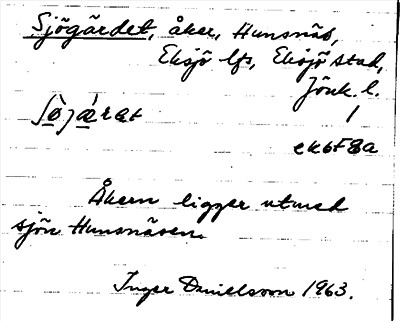 Sjögärdet, åker, Hunsnäs,
Eksjö lfs, Eksjö stad,
Jönk. l.
Åkern ligger utmed
sjön Hunsnäsen.
Inger Danielsson 1963.